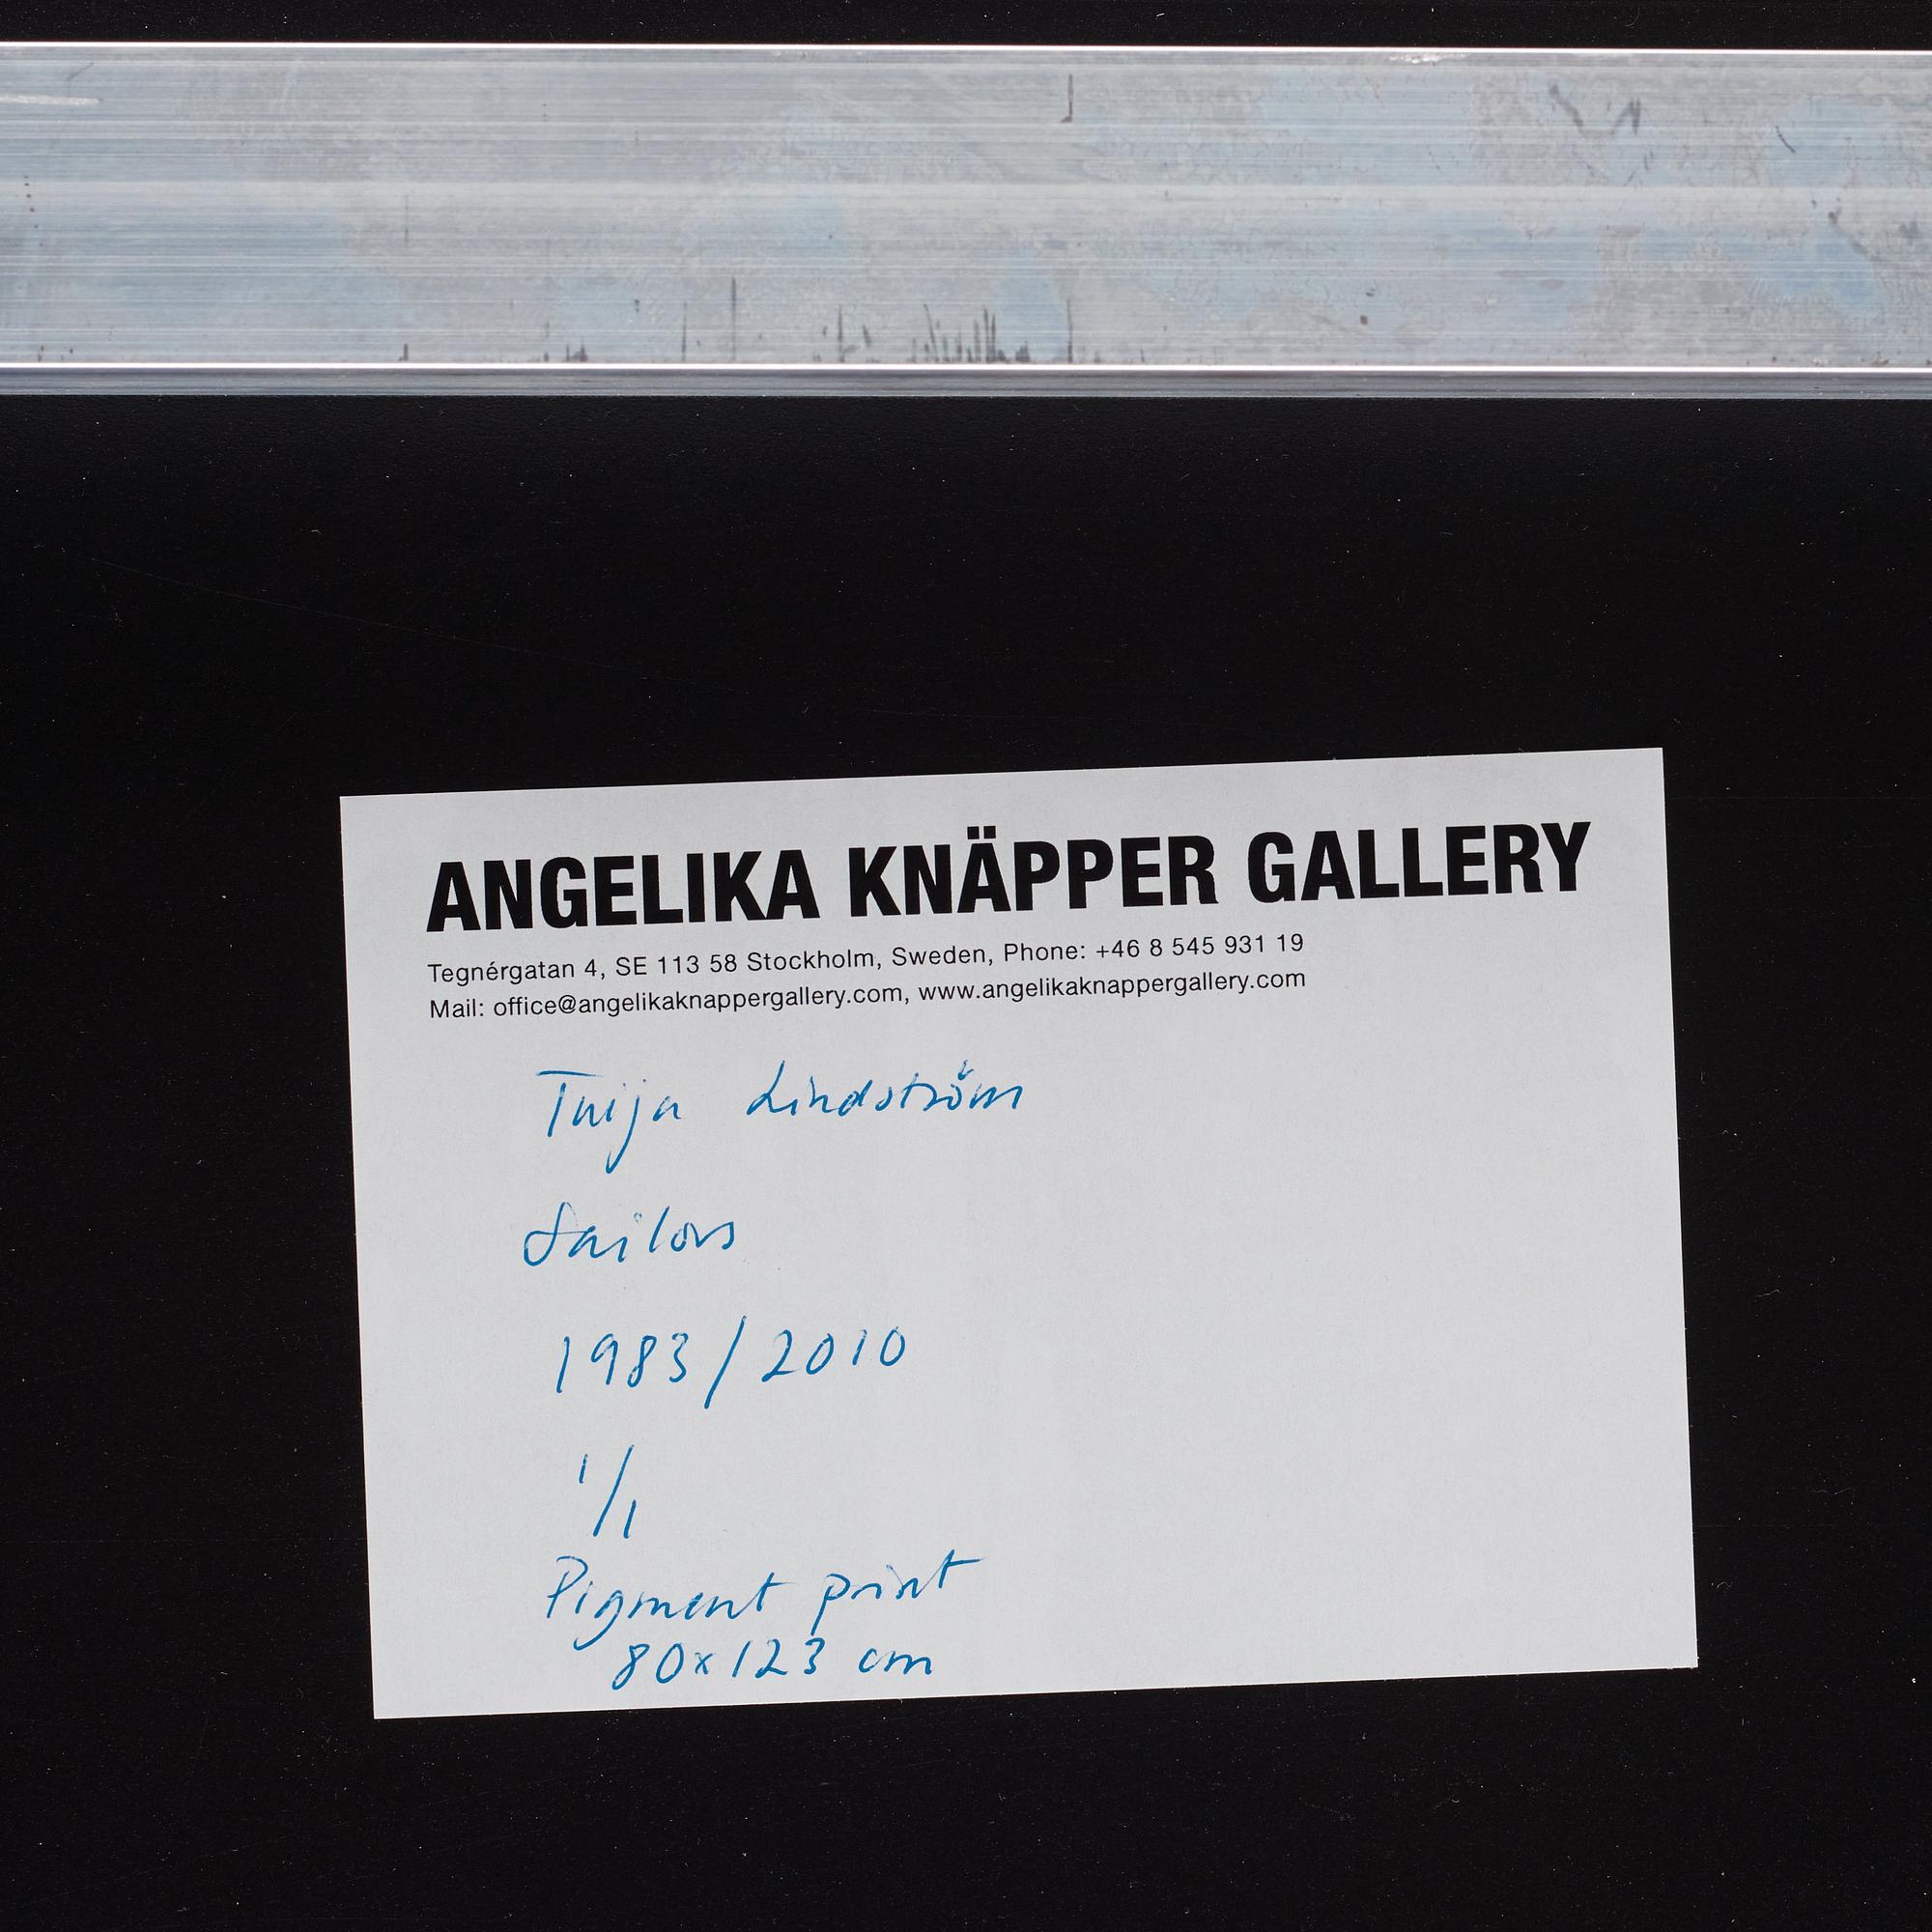 ANGELIKA KNÄPPER GALLERY
Tegnérgatan 4, SE 113 58 Stockholm, Sweden, Phone: +46 8 545 931 19
Mail: office@angelikaknappergallery.com, www.angelikaknappergallery.com
Tuija Lindström
Sailors
1983/2010
1/1
Pigment print
80x123 cm